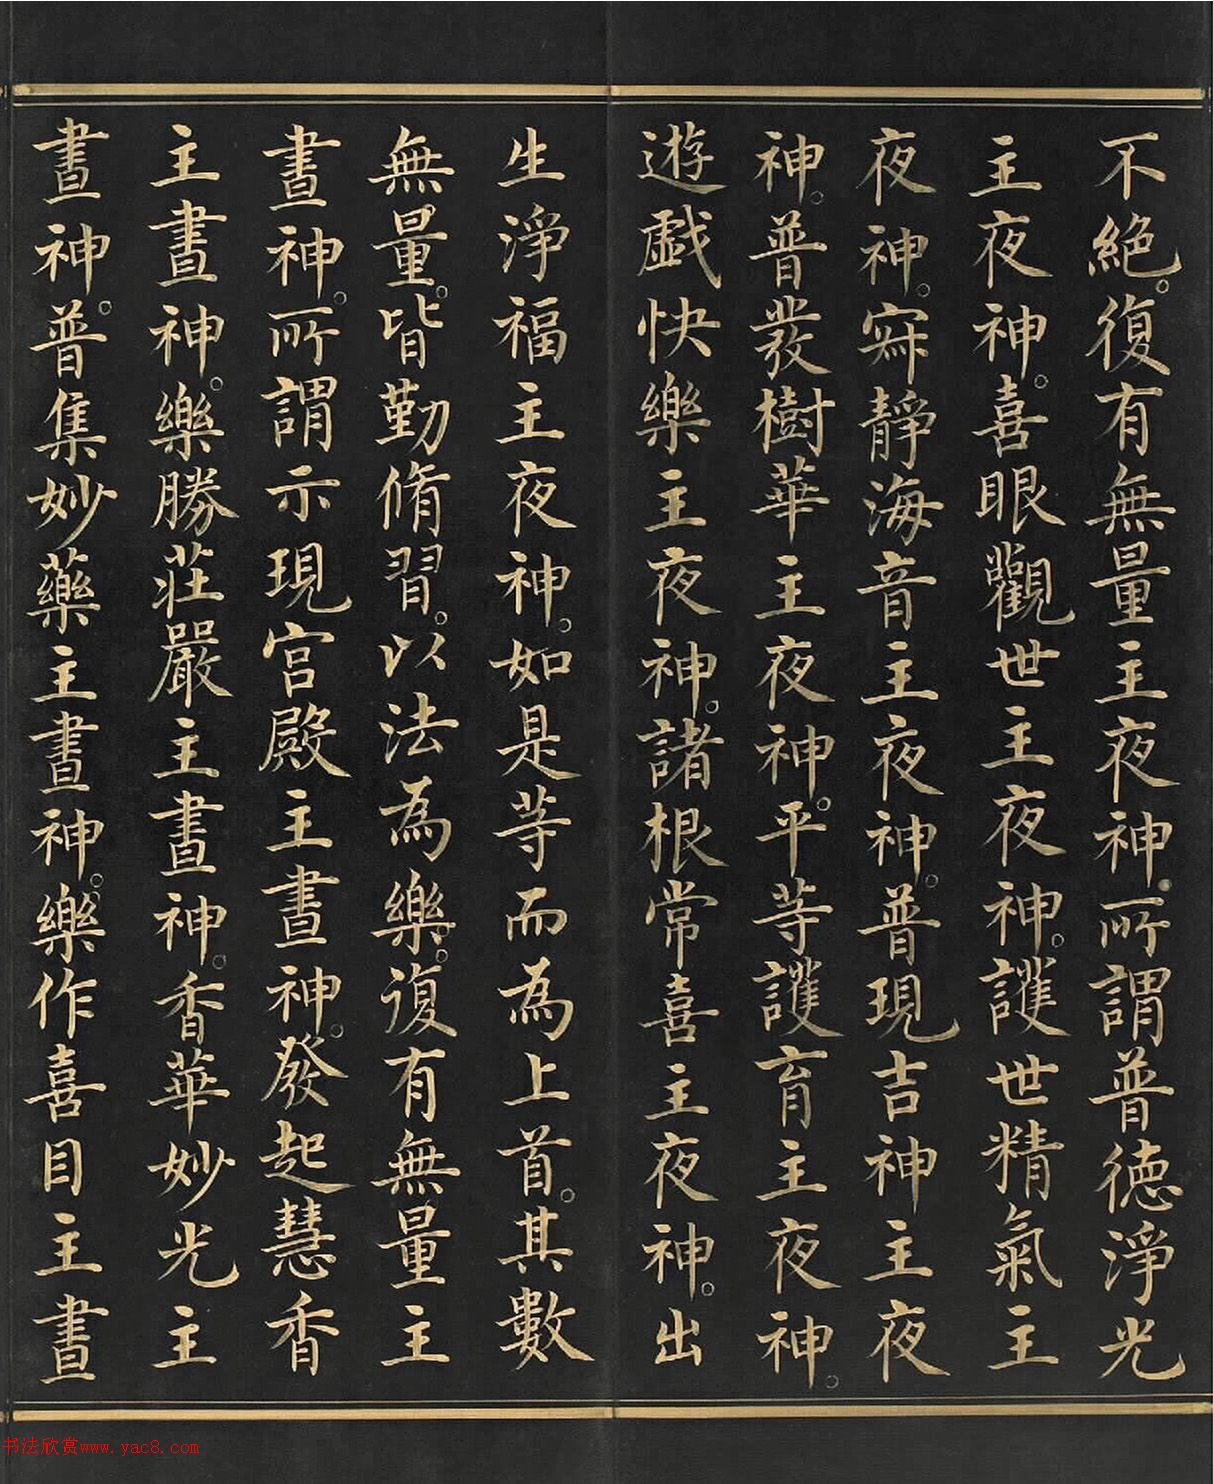 不絕。復有無量主夜神。所謂普德淨光
主夜神。喜眼觀世主夜神。護世精氣主
夜神。寂靜海音主夜神。普現吉神主夜
神。普發樹華主夜神。平等護育主夜神。
遊戲快樂主夜神。諸根常喜主夜神。出
生淨福主夜神。如是等而為上首。其數
無量。皆勤脩習。以法為樂。復有無量主
晝神。所謂示現宮殿主晝神。發起慧香
主晝神。樂勝莊嚴主晝神。香華妙光主
晝神。普集妙藥主晝神。樂作喜目主晝
书法欣赏www.yac8.com